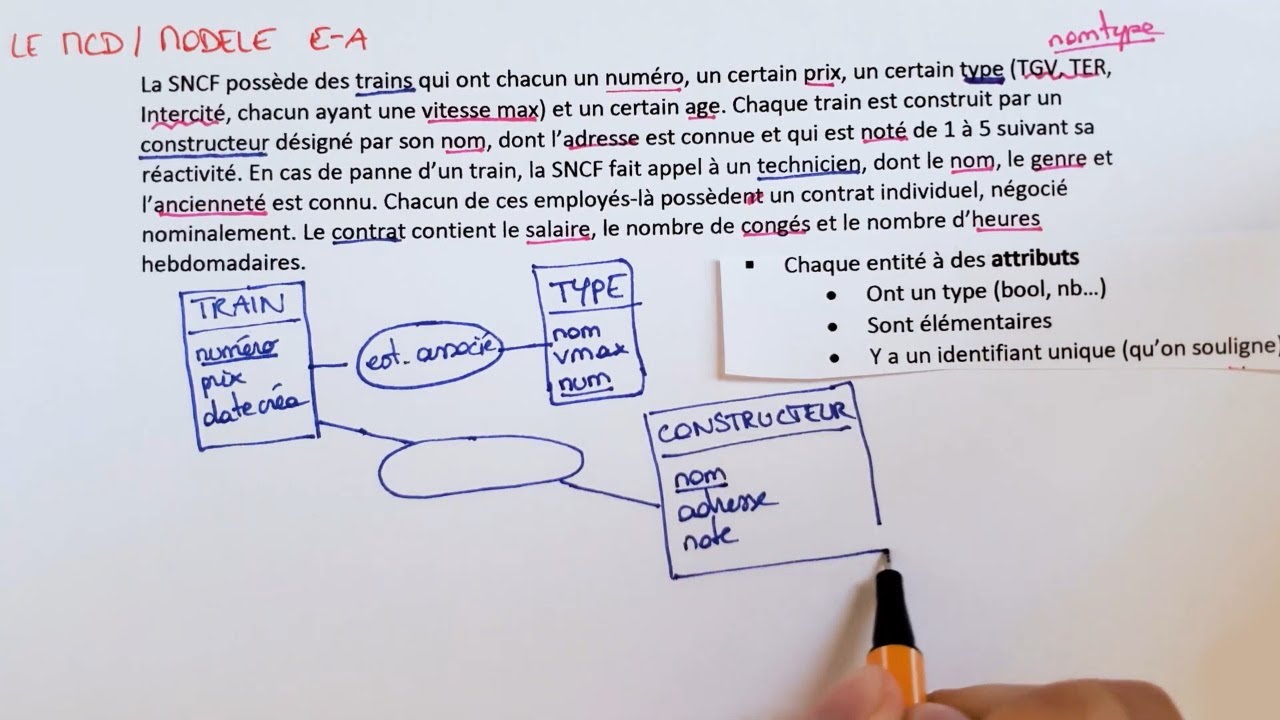 LE MCD / MODELE E-A
nomtype
La SNCF possède des trains qui ont chacun un numéro, un certain prix, un certain type (TGV, TER,
Intercité, chacun ayant une vitesse max) et un certain age. Chaque train est construit par un
constructeur désigné par son nom, dont l'adresse est connue et qui est noté de 1 à 5 suivant sa
réactivité. En cas de panne d'un train, la SNCF fait appel à un technicien, dont le nom, le genre et
l'ancienneté est connu. Chacun de ces employés-là possèdent un contrat individuel, négocié
nominalement. Le contrat contient le salaire, le nombre de congés et le nombre d'heures
hebdomadaires.
▪ Chaque entité à des attributs
• Ont un type (bool, nb…)
• Sont élémentaires
• Y a un identifiant unique (qu'on souligne)
TRAIN
numéro
prix
date créa
est_associé
TYPE
nom
vmax
num
CONSTRUCTEUR
nom
adresse
note